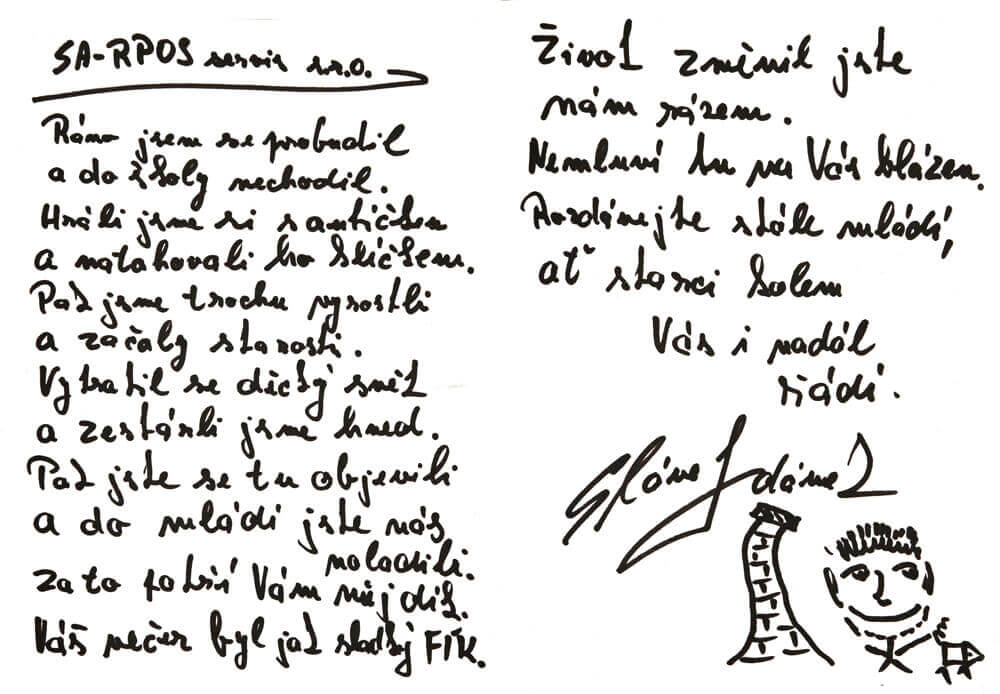 SA-RPOS servis s.r.o.
Ráno jsem se probudil
a do školy nechodil.
Hráli jsme si s autíčkem
a natahovali ho klíčkem.
Pak jsme trochu vyrostli
a začaly starosti.
Vytratil se dětský svět
a zestárli jsme hned.
Pak jste se tu objevili
a do mládí jste nás
naladili.
za to patří Vám můj dík.
Váš večer byl jak sladký FÍK.
Život změnil jste
nám rázem.
Nemluví tu na Vás blázen.
Rozdávejte stále mládí,
ať starci kolem
Vás i nadál
řádí.